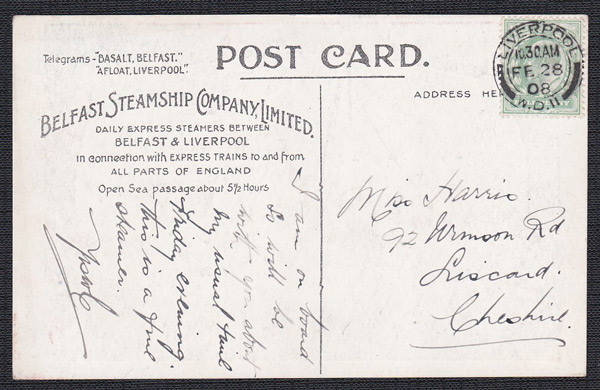 Telegrams - "BASALT, BELFAST."
"AFLOAT, LIVERPOOL".
POST CARD.
BELFAST STEAMSHIP COMPANY, LIMITED.
DAILY EXPRESS STEAMERS BETWEEN
BELFAST & LIVERPOOL
in connection with EXPRESS TRAINS to and from
ALL PARTS OF ENGLAND
Open Sea passage about 5½ Hours
ADDRESS HE
LIVERPOOL
10.30AM
FE 28
08
W.D.11
I am on board
So will be
with you about
my usual time
Friday evening.
This is a fine
steamer.
Miss Harris.
92 Urmson Rd
Liscard.
Cheshire.